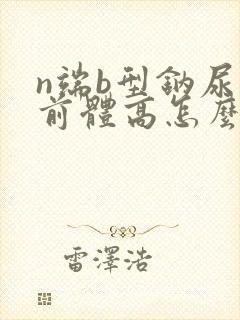 n端b型鈉尿
前體高怎麼
雷澤浩